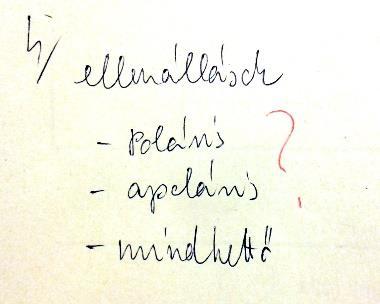 4/ ellenállások
- poláris
- apoláris
- mindkettő
?